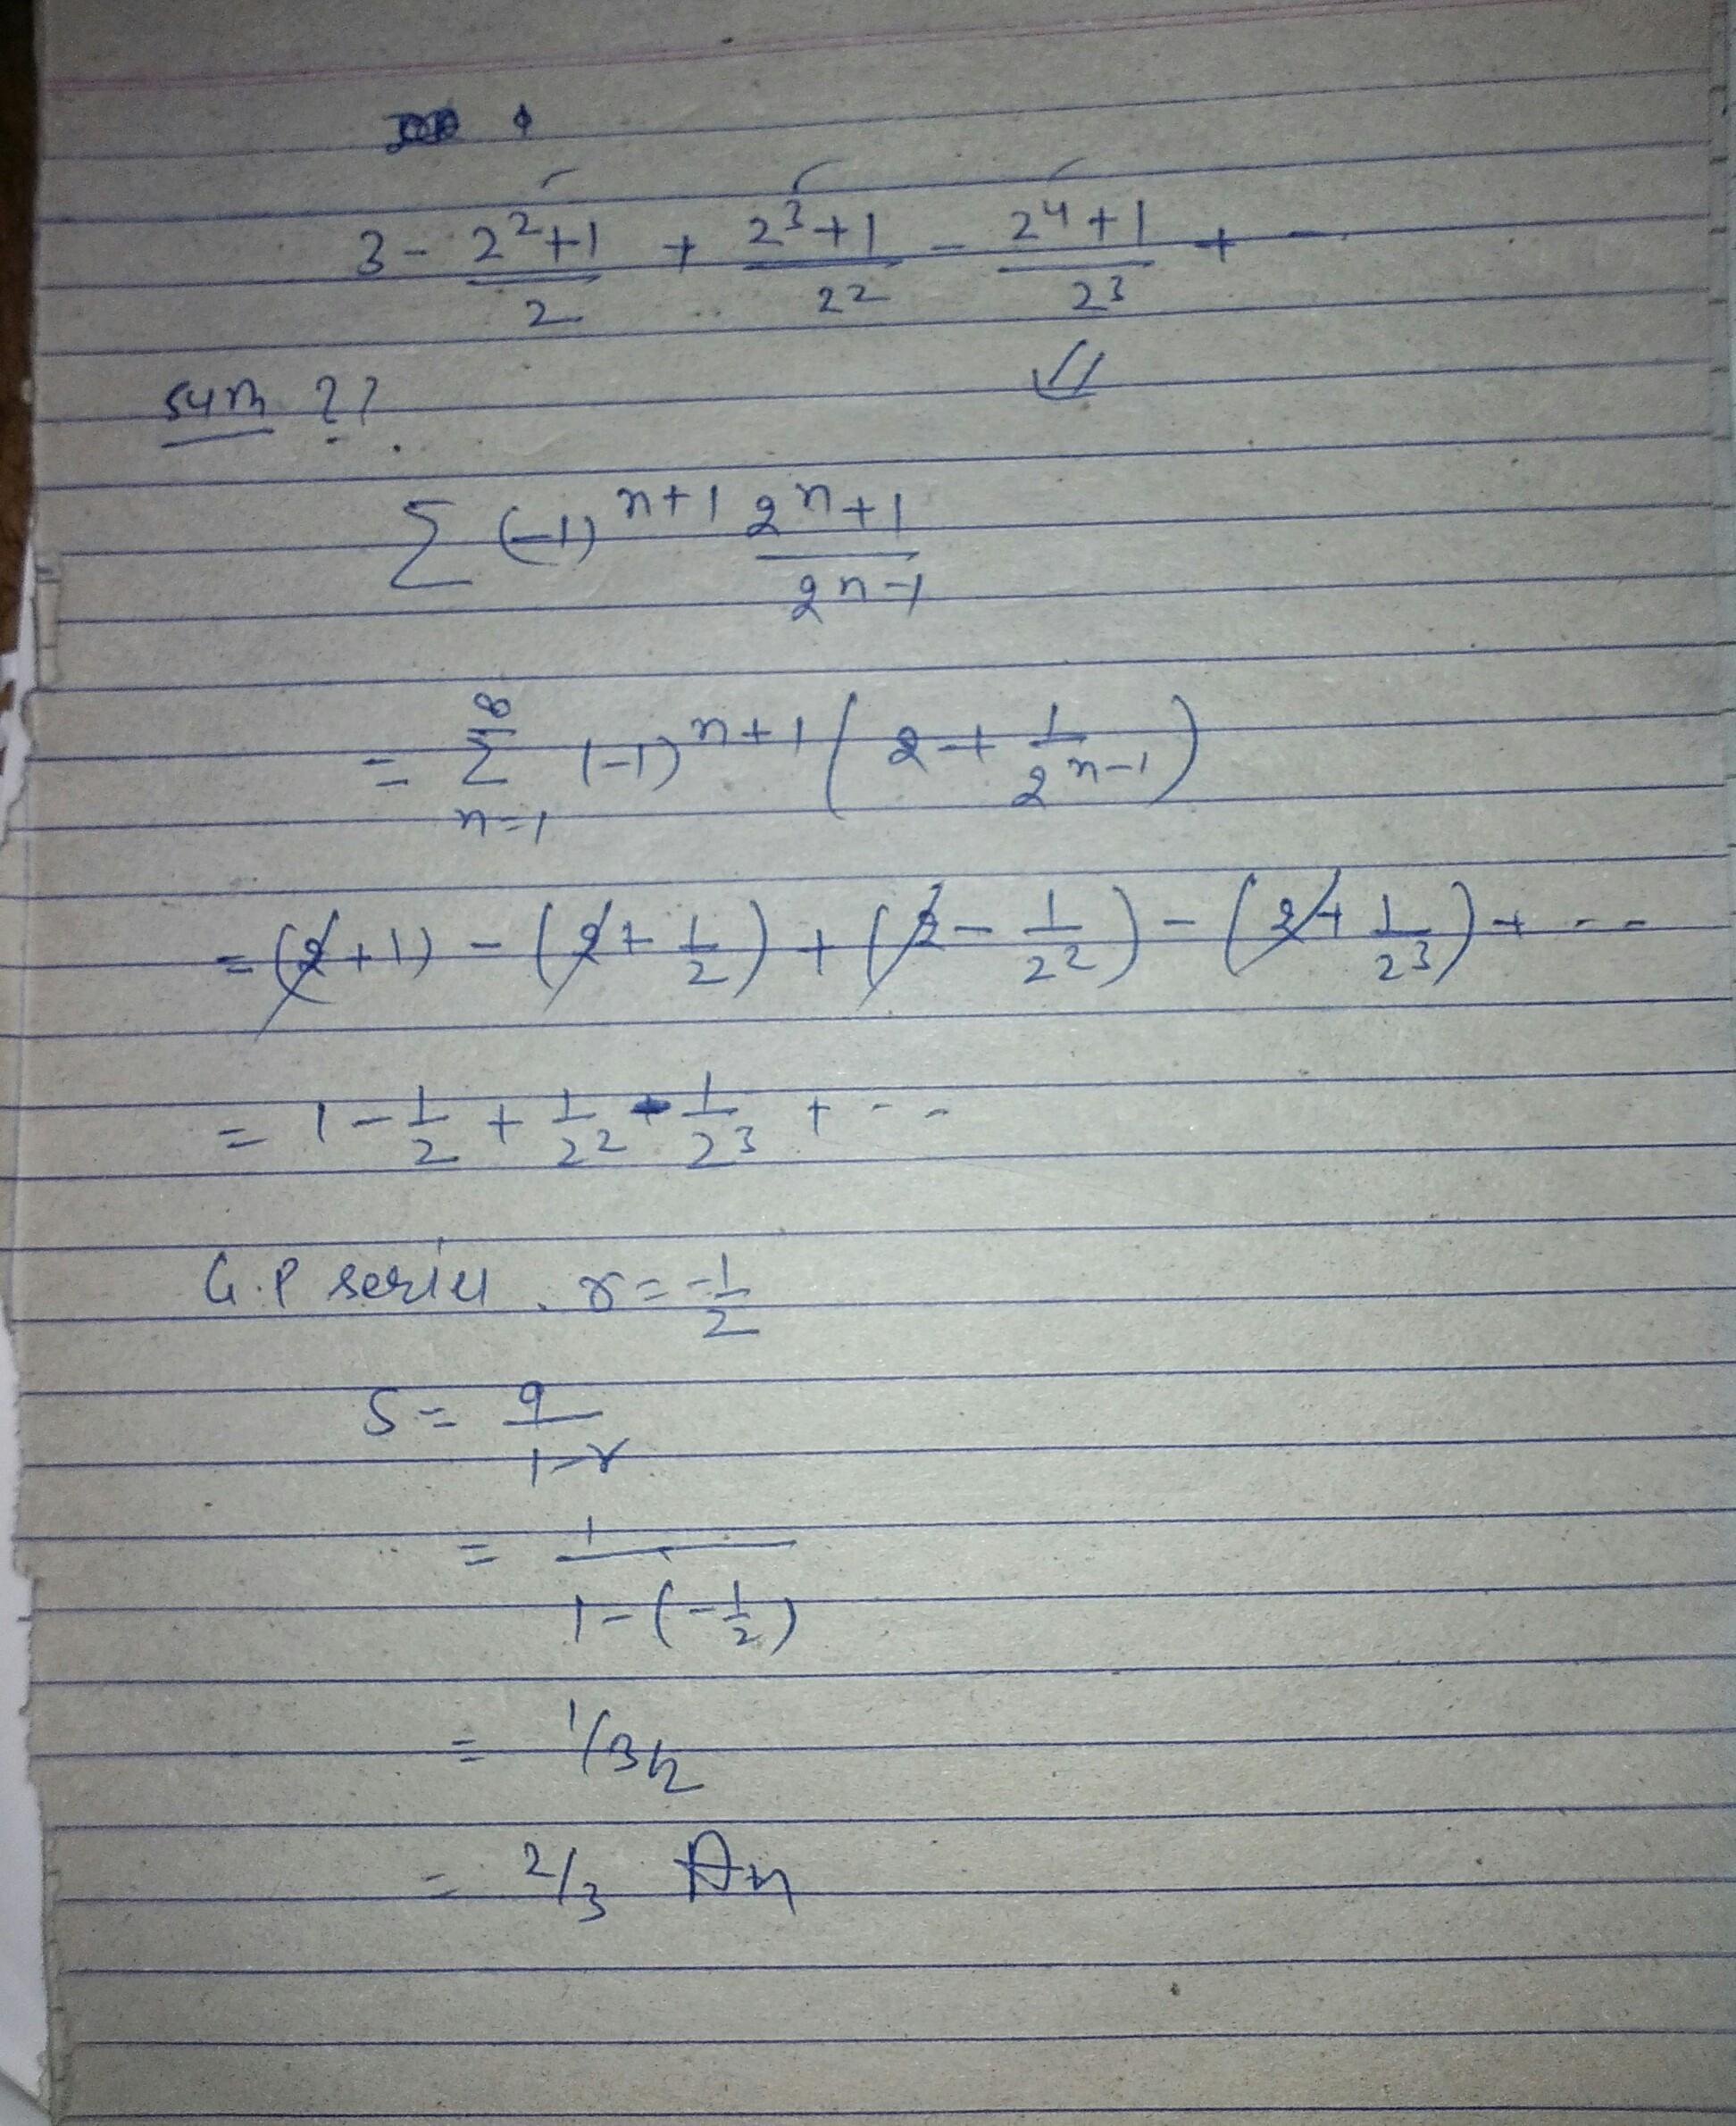 3 - (2²+1)/2 + (2³+1)/2² - (2⁴+1)/2³ + -
sum ??
Σ (-1)ⁿ⁺¹ (2ⁿ+1)/(2ⁿ⁻¹)
= Σ_{n=1}^{∞} (-1)ⁿ⁺¹ (2 + 1/2ⁿ⁻¹)
= (2+1) - (2+1/2) + (2-1/2²) - (2+1/2³) + ---
= 1 - 1/2 + 1/2² - 1/2³ + ---
G.P series. r = -1/2
S = a/(1-r)
= 1/(1-(-1/2))
= 1/3/2
= 2/3 An